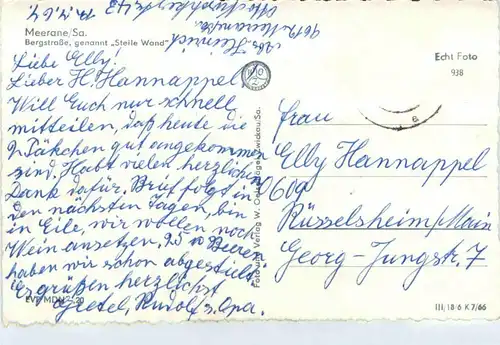 Meerane/Sa.
Bergstraße, genannt „Steile Wand"
Liebe Elly!
Lieber H. Hannappel!
Will Euch nur schnell
mitteilen, daß heute die
2 Päkchen gut angekommen
sind. Habt vielen herzlichen
Dank dafür. Brief folgt in
den nächsten Tagen, bin
in Eile, wir wollen noch
Wein ansetzen, 95 Beeren
haben wir schon abgestielt.
Es grüßen herzlichst
Gretel, Rudolf u. Opa.
Echt Foto
938
Frau
Elly Hannappel
6090
Rüsselsheim/Main
Georg-Jung-str. 7
III/18/6 K 7/66